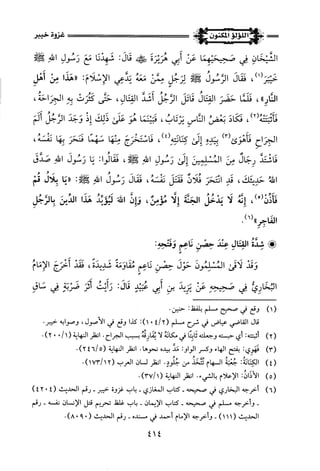 غزوة خيبر
اللؤلؤ المكنون
الشَّيْخَانِ فِي صَحِيحَيْهِمَا عَنْ أَبِي هُرَيْرَةَ ﷺ قَالَ: شَهِدْنَا مَعَ رَسُولِ اللهِ ﷺ
خَيْبَرَ(١)، فَقَالَ الرَّسُولُ ﷺ لِرَجُلٍ مِمَّنْ مَعَهُ يَدَّعِي الإِسْلَامَ: «هَذَا مِنْ أَهْلِ
النَّارِ»، فَلَمَّا حَضَرَ القِتَالُ قَاتَلَ الرَّجُلُ أَشَدَّ القِتَالِ، حَتَّى كَثُرَتْ بِهِ الجِرَاحَةُ،
فَأَثْبَتَتْهُ(٢)، فَكَادَ بَعْضُ النَّاسِ يَرْتَابُ، فَبَيْنَمَا هُوَ عَلَى ذَلِكَ إِذْ وَجَدَ الرَّجُلُ أَلَمَ
الجِرَاحِ فَأَهْوَى(٣) بِيَدِهِ إِلَى كِنَانَتِهِ(٤)، فَاسْتَخْرَجَ مِنْهَا سَهْمًا فَنَحَرَ بِهَا نَفْسَهُ،
فَاشْتَدَّ رِجَالٌ مِنَ المُسْلِمِينَ إِلَى رَسُولِ اللهِ ﷺ، فَقَالُوا: يَا رَسُولَ اللهِ صَدَّقَ
اللهُ حَدِيثَكَ، قَدِ انْتَحَرَ فُلَانٌ فَقَتَلَ نَفْسَهُ، فَقَالَ رَسُولُ اللهِ ﷺ: «يَا بِلَالُ قُمْ
فَأَذِّنْ(٥)، إِنَّهُ لَا يَدْخُلُ الجَنَّةَ إِلَّا مُؤْمِنٌ، وَإِنَّ اللهَ لَيُؤَيِّدُ هَذَا الدِّينَ بِالرَّجُلِ
الفَاجِرِ»(٦).
شِدَّةُ القِتَالِ عِنْدَ حِصْنِ نَاعِمٍ وَفَتْحِهِ:
وَقَدْ لَاقَى المُسْلِمُونَ حَوْلَ حِصْنِ نَاعِمٍ مُقَاوَمَةً شَدِيدَةً، فَقَدْ أَخْرَجَ الإِمَامُ
البُخَارِيُّ فِي صَحِيحِهِ عَنْ يَزِيدَ بنِ أَبِي عُبَيْدٍ قَالَ: رَأَيْتُ أَثَرَ ضَرْبَةٍ فِي سَاقِ
(١) وقع في صحيح مسلم بلفظ: حنين.
قال القاضي عياض في شرح مسلم (١٠٤/٢): كذا وقع في الأصول، وصوابه خيبر.
(٢) أثبتته: أي حبسته وجعلته ثابتًا في مكانه لا يفارقه بسبب الجراح. انظر النهاية (٢٠٠/١).
(٣) فهوي: بفتح الهاء وكسر الواو: مَدَّ بيده نحوها. انظر النهاية (٢٤٦/٥).
(٤) الكِنَانَةُ: جُعْبَةُ السهام تُتَّخذ من جُلُودٍ. انظر لسان العرب (١٧٣/١٢).
(٥) الأذان: الإعلام بالشيء. انظر النهاية (٣٧/١).
(٦) أخرجه البخاري في صحيحه - كتاب المغازي - باب غزوة خيبر - رقم الحديث (٤٢٠٤)
- وأخرجه مسلم في صحيحه - كتاب الإيمان - باب غلظ تحريم قتل الإنسان نفسه - رقم
الحديث (١١١) - وأخرجه الإمام أحمد في مسنده - رقم الحديث (٨٠٩٠).
٤١٤